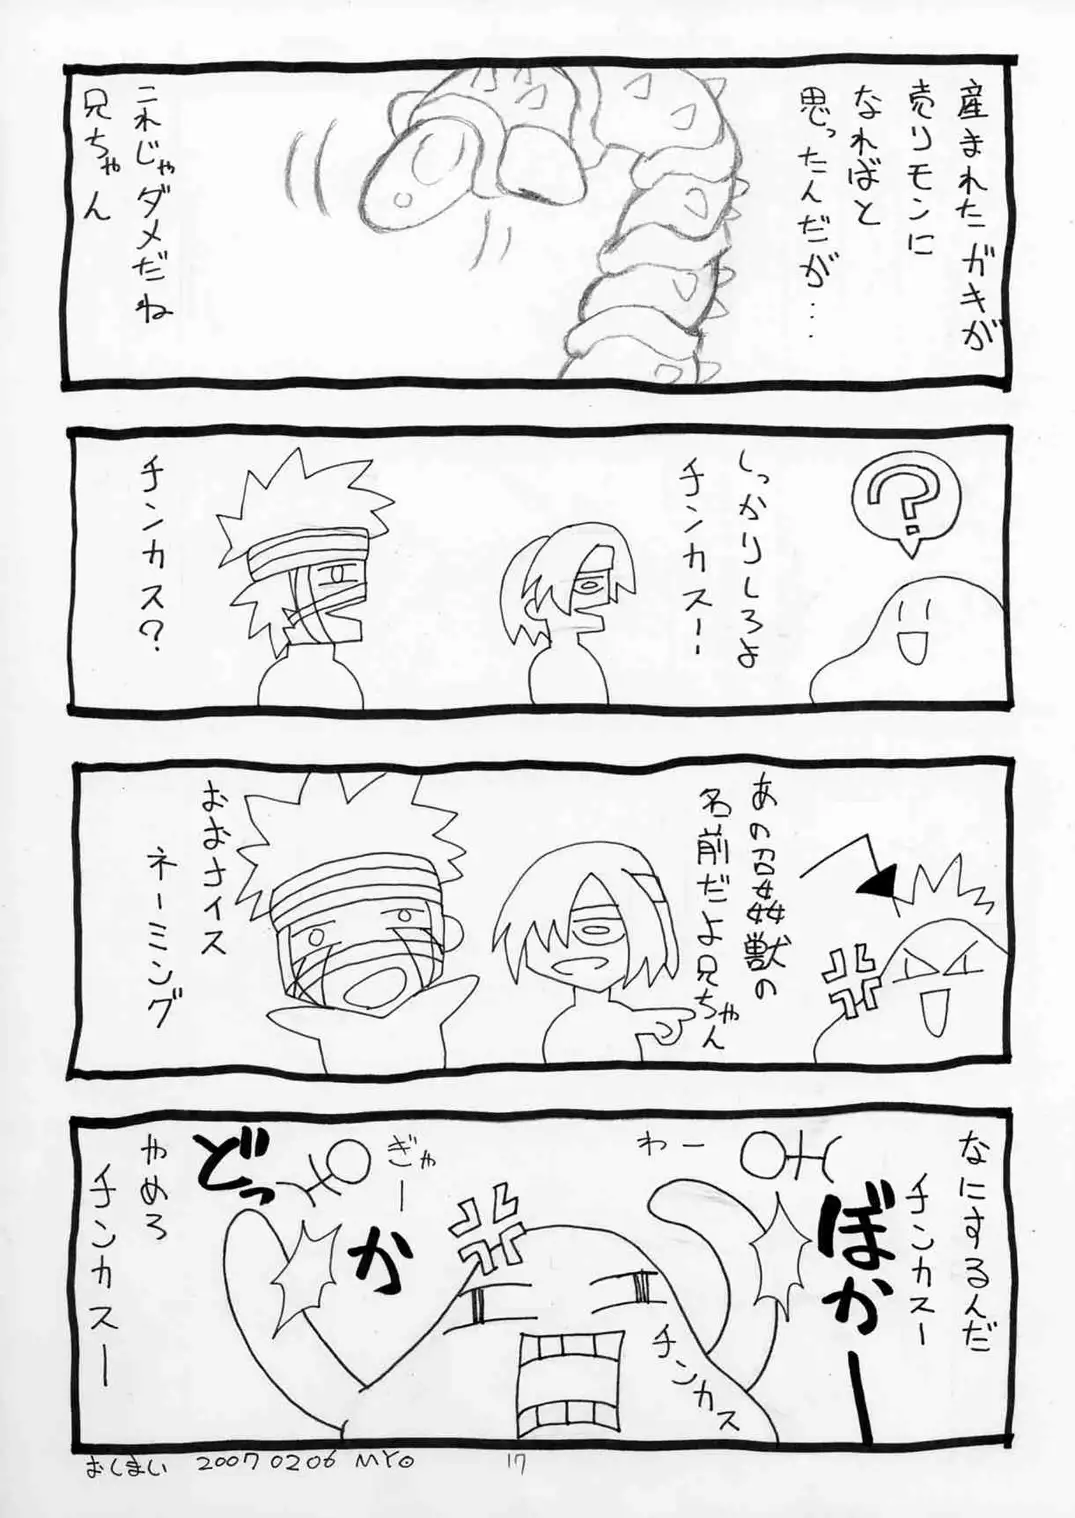 産まれたガキが
売リモンに
なればと
思ったんだが...
これじゃダメだね
兄ちゃん
?
しっかりしろよ
チンカスー
チンカス?
あの召姦獣の
名前だよ兄ちゃん
おおナイス
ネーミング
なにするんだ
チンカスー
ぼかー
わー
ぎゃー
どっ
か
チンカス
やめろ
チンカスー
おしまい 20070206 MYO
17